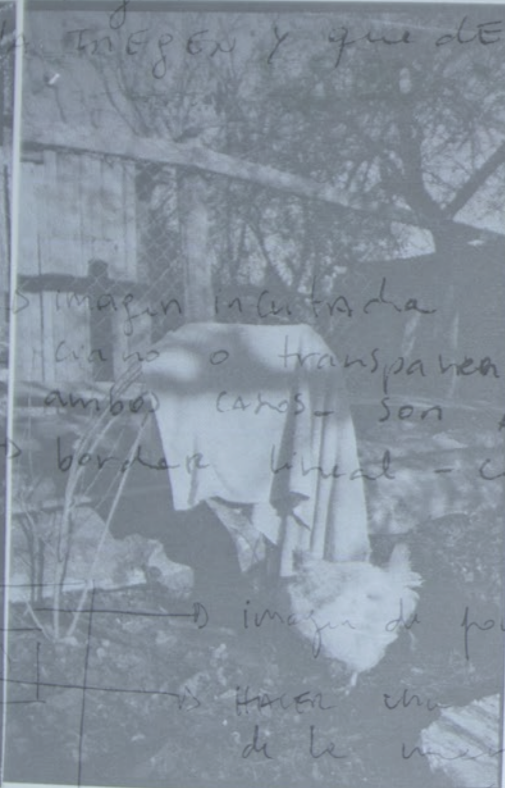 LA IMEGEN Y que dE
imagen incrustada
ciano o transparen
ambos casos - son
border lineal - c
imagen de po
HACER una
de la